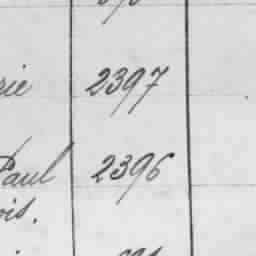 rie 2397
Paul 2396
ois.